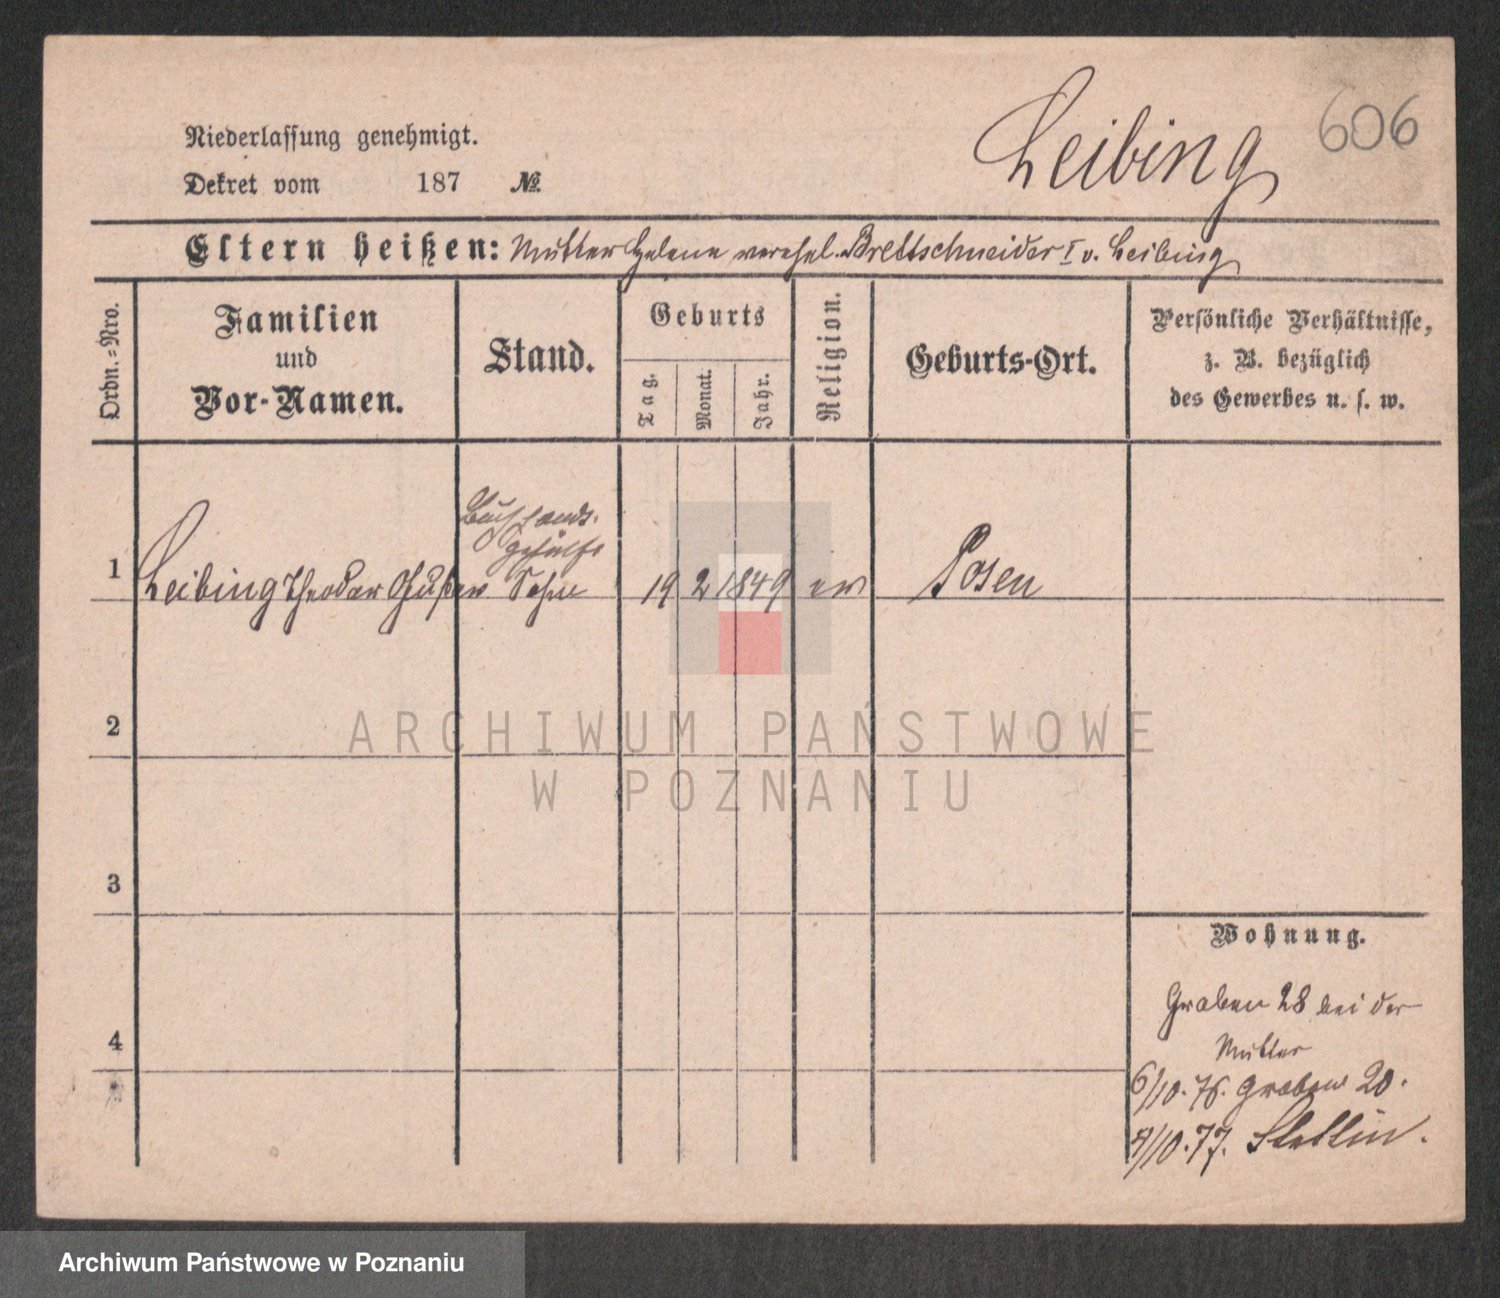 606
Leibing
Niederlassung genehmigt.
Dekret vom 187 №
Eltern heißen: Mutter Helene verehel. Brettschneider I v. Leibing
Ordn.=Nro.
Familien
und
Vor-Namen.
Stand.
Geburts
Tag.
Monat.
Jahr.
Religion.
Geburts-Ort.
Persönliche Verhältnisse,
z. B. bezüglich
des Gewerbes u. s. w.
Buchhandl.
Gehülfe
1 Leibing Theodor Gustav Sohn 19 2 1849 ev Posen
2
ARCHIWUM PAŃSTWOWE
W POZNANIU
3
Wohnung.
Graben 28 bei der
Mutter
4
6/10. 76. Graben 20.
9/10. 77. Stettin.
Archiwum Państwowe w Poznaniu